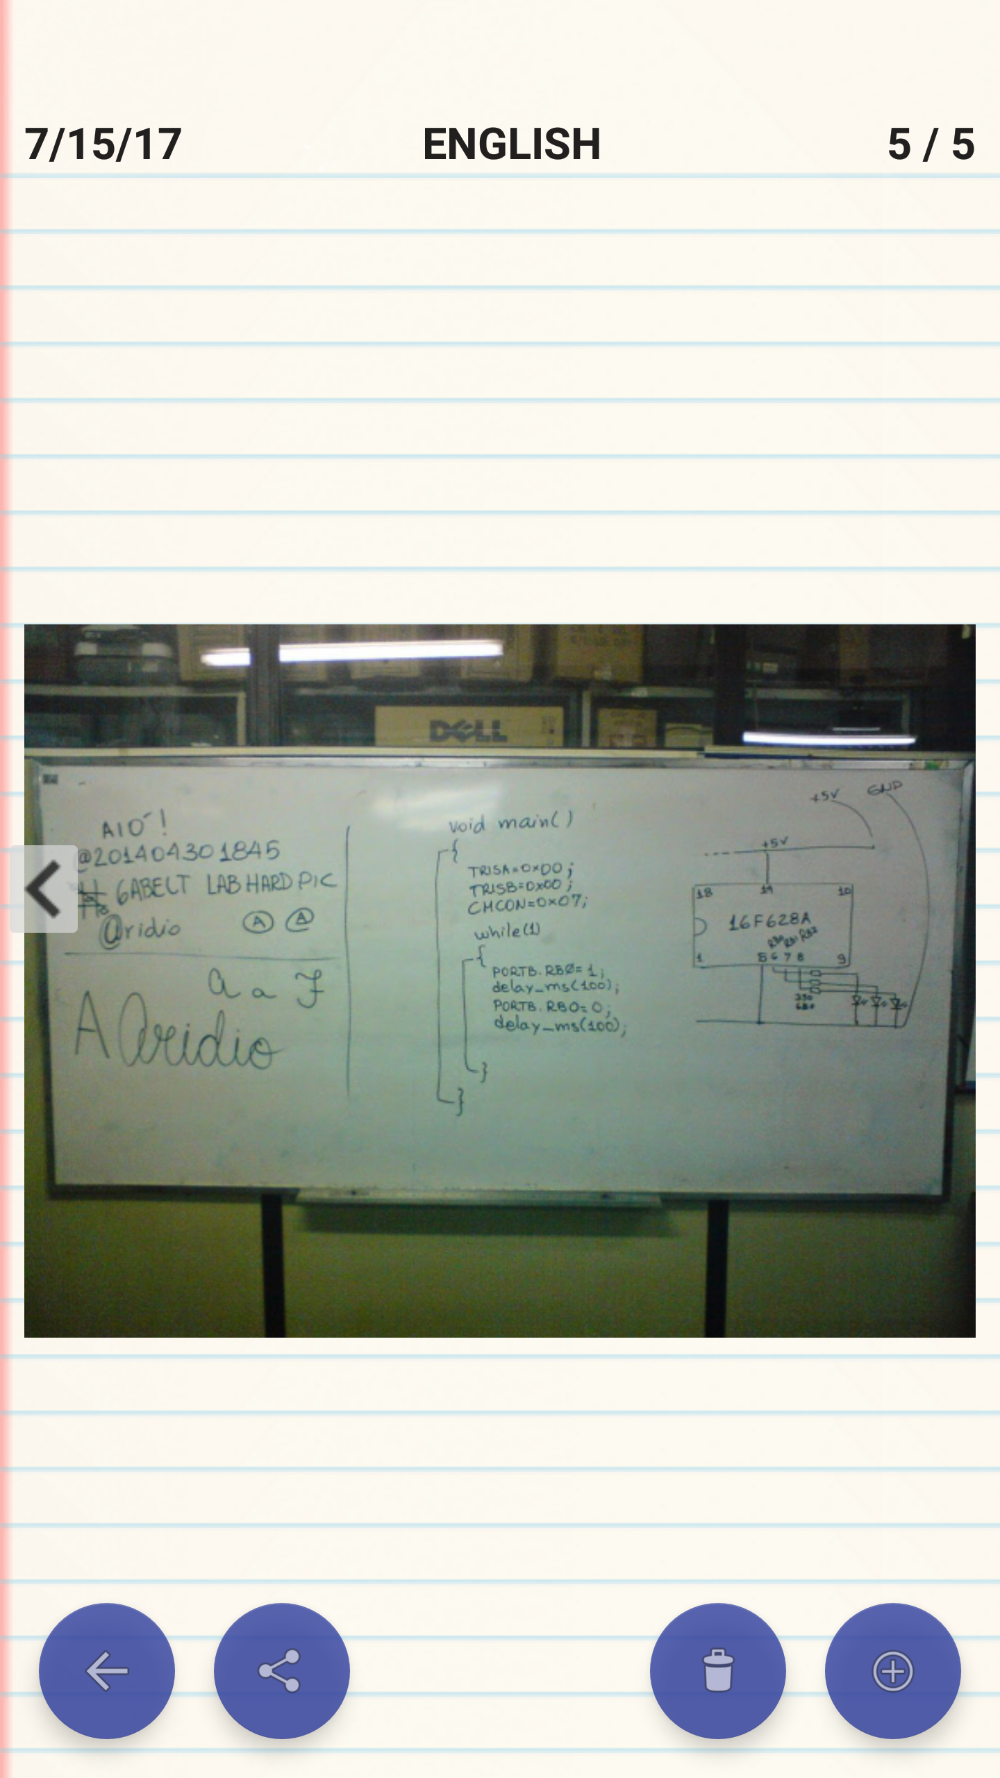 7/15/17 ENGLISH 5 / 5
DELL
AIÓ!
@201404301845
# GABELT LAB HARD PIC
@ridio A A
a a F
A @ridio
void main()
{
TRISA=0x00;
TRISB=0x00;
CMCON=0x07;
while(1)
{
PORTB.RB0=1;
delay_ms(100);
PORTB.RB0=0;
delay_ms(100);
}
}
+5V GND
+5V
18 14 10
16F628A
RB0 RB1 RB2
1 5 6 7 8 9